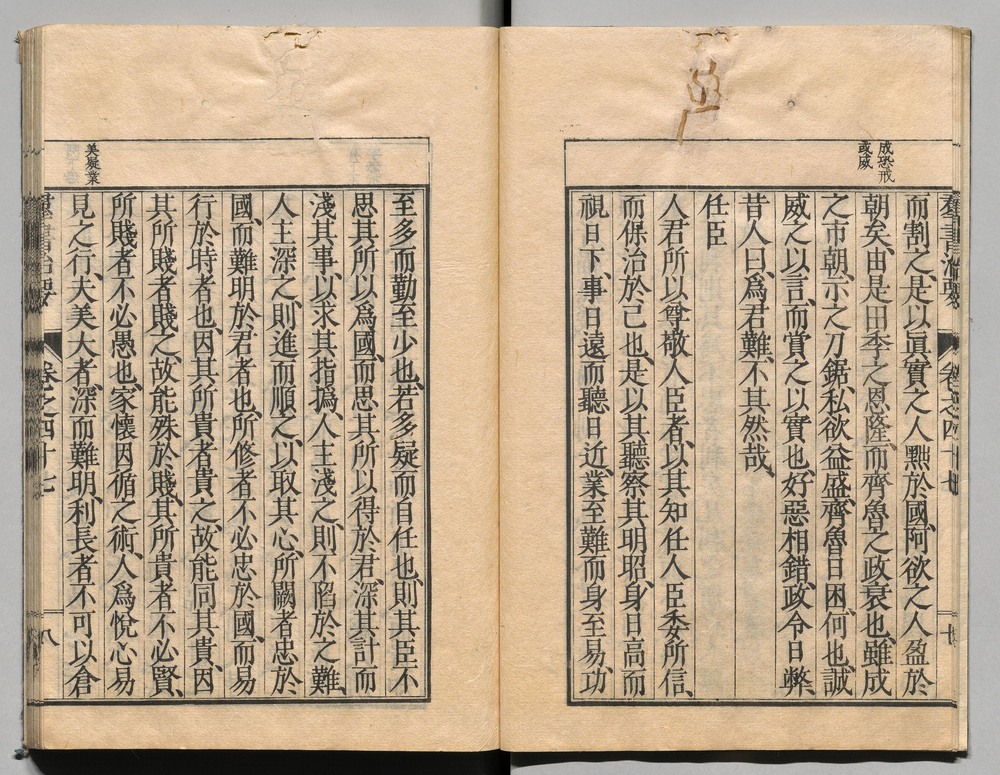 成恐戒
或威
羣書治要
卷之四十七
七
而割之、是以眞實之人黜於國、阿欲之人盈於
朝矣、由是田季之恩隆、而齊魯之政衰也、雖成
之市朝、示之刀鋸、私欲益盛、齊魯日困、何也、誠
威之以言、而賞之以實也、好惡相錯、政令日弊、
昔人曰、爲君難、不其然哉、
任臣
人君所以尊敬人臣者、以其知任人臣委所信、
而保治於己也、是以其聽察、其明昭、身日高而
視日下、事日遠而聽日近、業至難而身至易、功
至多而勤至少也、若多疑而自任也、則其臣不
思其所以爲國、而思其所以得於君、深其計而
淺其事、以求其指撝、人主淺之、則不陷於之難、
人主深之、則進而順之、以取其心、所闕者忠於
國、而難明於君者也、所修者不必忠於國、而易
行於時者也、因其所貴者貴之、故能同其貴、因
其所賤者賤之、故能殊於賤、其所貴者不必賢、
所賤者不必愚也、家懷因循之術、人爲悅心易
見之行、夫美大者、深而難明、利長者不可以倉
美疑業
羣書治要
卷之四十七
八